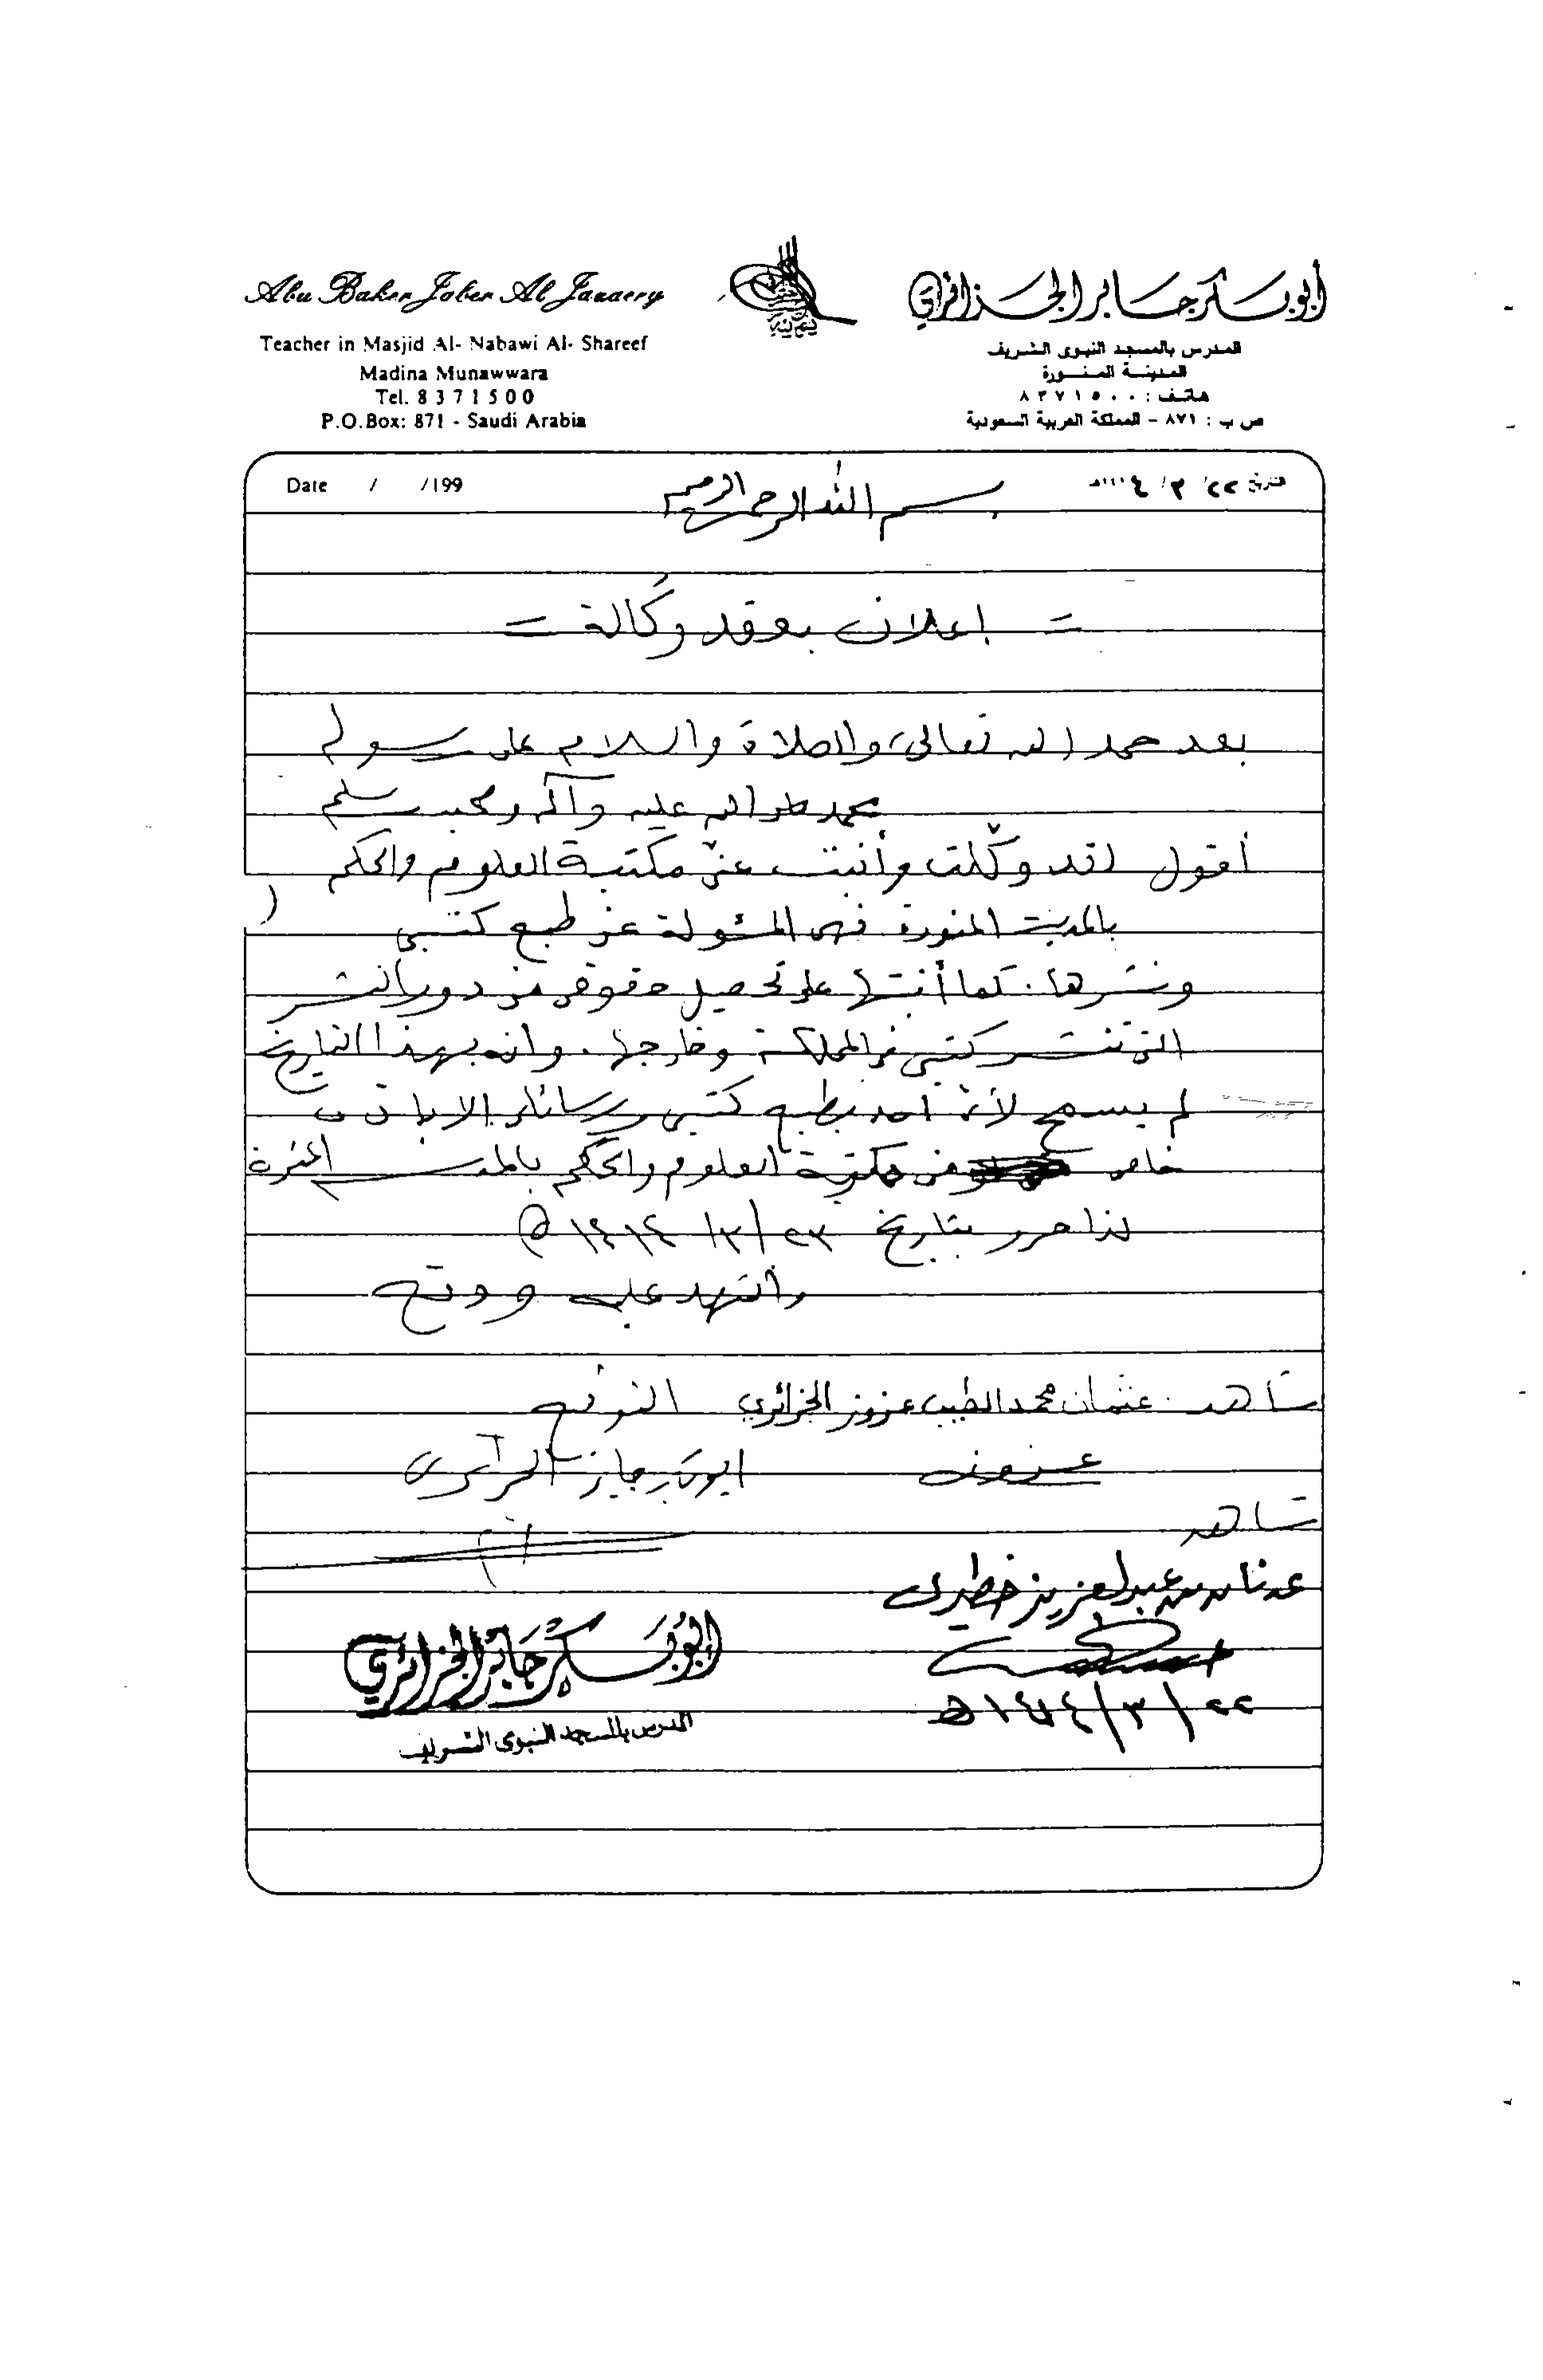 Abu Baker Jaber Al Jazaery
Teacher in Masjid Al- Nabawi Al- Shareef
Madina Munawwara
Tel. 8 3 7 1 5 0 0
P.O.Box: 871 - Saudi Arabia
أبو بكر جابر الجزائري
المدرس بالمسجد النبوى الشريف
المدينة المنورة
هاتف : ٨٣٧١٥٠٠
ص ب : ٨٧١ – المملكة العربية السعودية
Date / /199
التاريخ ٢٢/ ٣/
بسم الله الرحمن الرحيم
= إعلان بعقد وكالة =
بعد حمد الله تعالى، والصلاة والسلام على رسوله
محمد صلى الله عليه وآله وصحبه وسلم
أقول لقد وكّلت وأنبت عنّى مكتبة العلوم والحكم
بالمدينة المنورة فهى المسئولة عن طبع كتبى
ونشرها. كما أنبتها على تحصيل حقوقى من دور النشر
التى تنشر كتبى فى المملكة وخارجها. وانه بهذا التاريخ
لم يسمح لأى أحد بطبع كتبى ورسائلى إلا بإذن
خاص من مكتبة العلوم والحكم بالمدينة المنورة
لذا حرر بتاريخ ٢٣/٣/ ١٤١٤ ه
وأشهد عليه ووقع
شاهد. عثمان محمد الطيب عزوز الجزائري التوقيع
عزوز ابو بكر جابر الجزائرى
شاهد
عدنان بن عبدالعزيز خطيرى
٢٢/٣/١٤١٤ه
أبو بكر جابر الجزائري
المدرس بالمسجد النبوى الشريف